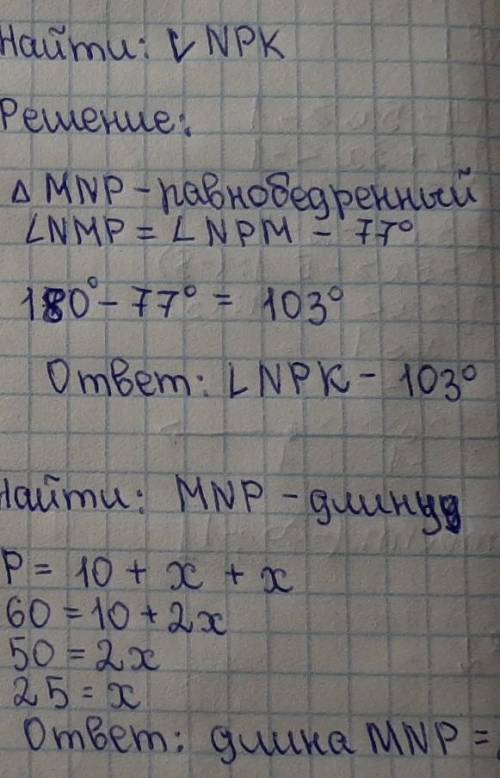 Найти: ∠NPK
Решение:
△ MNP - равнобедренный
∠NMP = ∠NPM - 77°
180° - 77° = 103°
Ответ: ∠NPK - 103°
Найти: MNP - длину
P = 10 + x + x
60 = 10 + 2x
50 = 2x
25 = x
Ответ: длина MNP =